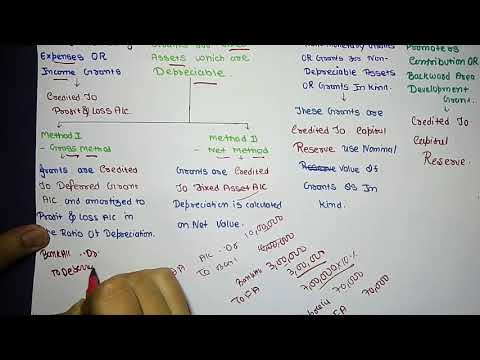 Expenses OR
Income Grants
Credited To
Profit & Loss A/c
Assets which are
Depreciable.
OR Grants for Non-
Depreciable Assets
OR Grants In Kind.
These Grants are
Credited To Capital
Reserve use Nominal
Value Of
Grants Is In
Kind.
Promoters
Contribution OR
Backward Area
Development
Grant.
Credited To
Capital
Reserve.
Method I
Gross Method
Grants are Credited
To Deferred Grant
A/c and amortized to
Profit & Loss A/c in
the Ratio Of Depreciation.
Bank A/c ..Dr
To Deferre
Method II
Net Method
Grants are Credited
To Fixed Asset A/c
Depreciation is calculated
on Net Value.
A/c ..Dr 10,00,000
To Bank 10,00,000
Bank A/c 3,00,000
To FA 3,00,000
7,00,000 × 10%
70,000
70,000